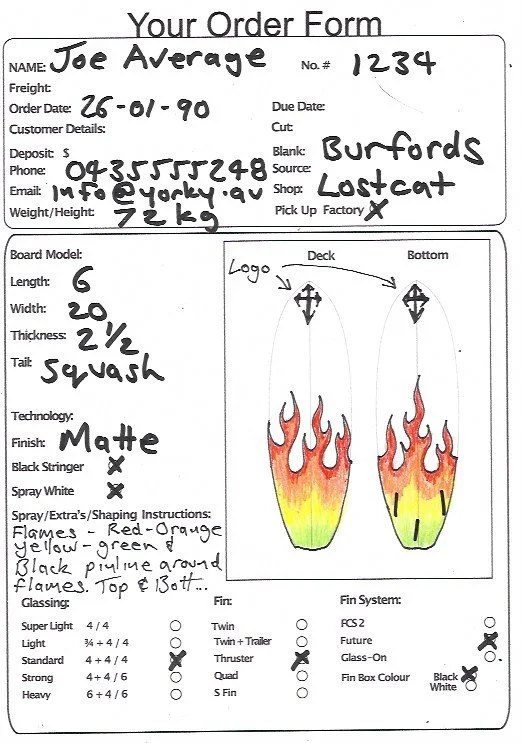 Your Order Form
NAME: Joe Average No. # 1234
Freight:
Order Date: 26-01-90 Due Date:
Customer Details: Cut:
Deposit: $ Blank: Burfords
Phone: 0435555248 Source:
Email: info@yorky.au Shop: Lostcat
Weight/Height: 72kg Pick Up Factory X
Board Model:
Deck Bottom
Logo
Length: 6
Width: 20
Thickness: 2 1/2
Tail: Squash
Technology:
Finish: Matte
Black Stringer X
Spray White X
Spray/Extra's/Shaping Instructions:
Flames - Red-Orange
yellow-green &
Black pinline around
flames. Top & Bott...
Glassing: Fin: Fin System:
Super Light 4 / 4 Twin FCS 2
Light ¾ + 4 / 4 Twin + Trailer Future X
Standard 4 + 4 / 4 X Thruster X Glass-On
Strong 4 + 4 / 6 Quad Fin Box Colour Black X
White
Heavy 6 + 4 / 6 S Fin